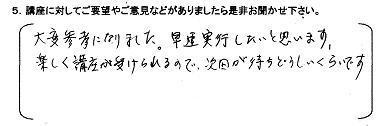 5. 講座に対してご要望やご意見などがありましたら是非お聞かせ下さい。
大変参考になりました。早速実行したいと思います。
楽しく講座が受けられるので、次回が待ちどうしいくらいです